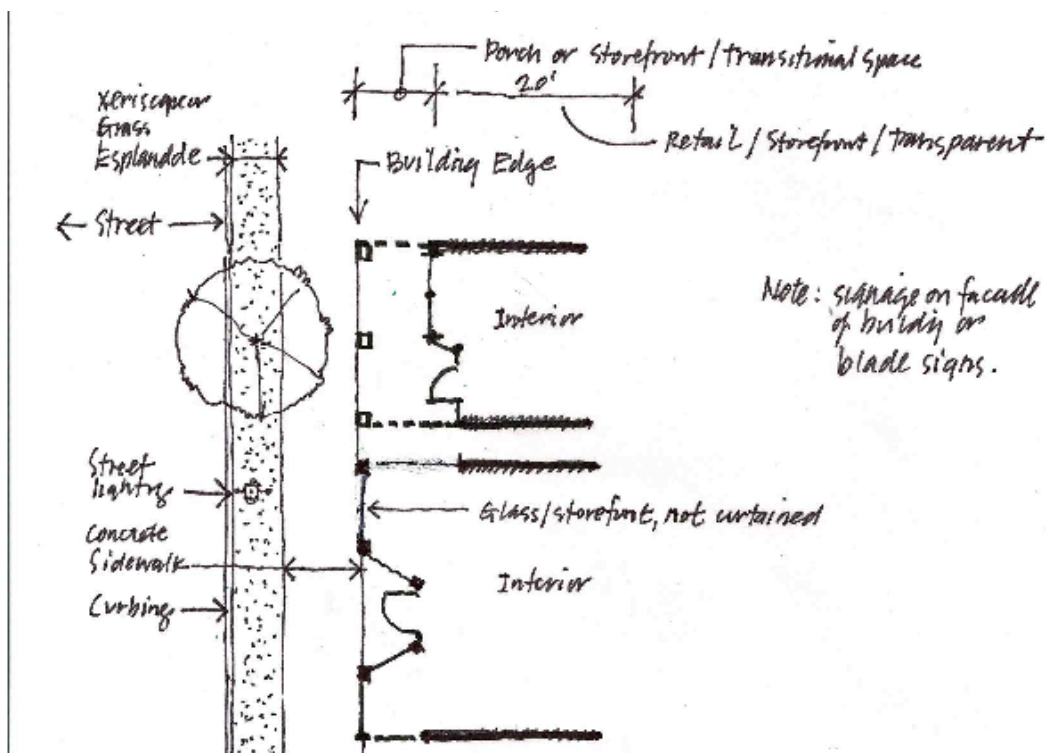 Porch or Storefront/Transitional Space
20'
Retail/Storefront/Transparent
Grass
Esplandde
Building Edge
Street
Interior
Note: signage on facade
of buildig or
blade signs.
Street
lighting
Glass/storefront, not curtained
Concrete
Sidewalk
Interior
Curbing